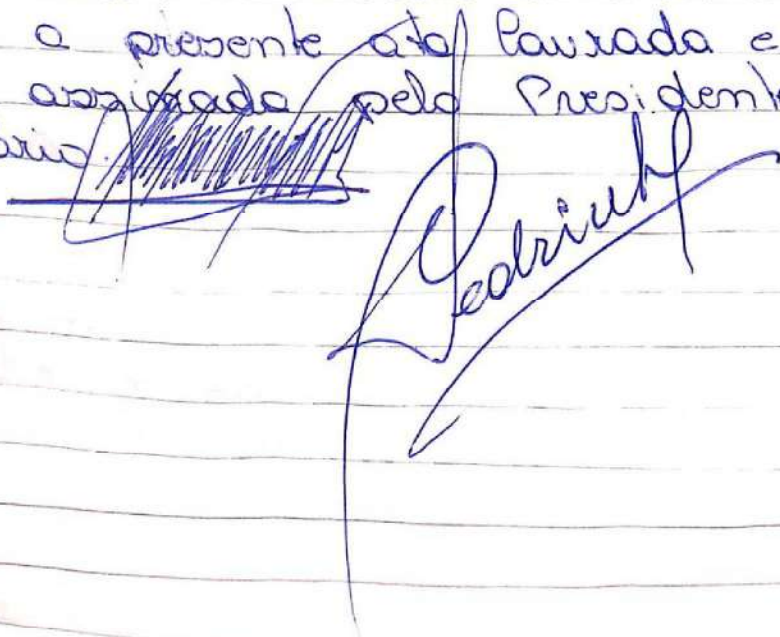 a presente ata lavrada e
assinada pelo Presidente
ario.